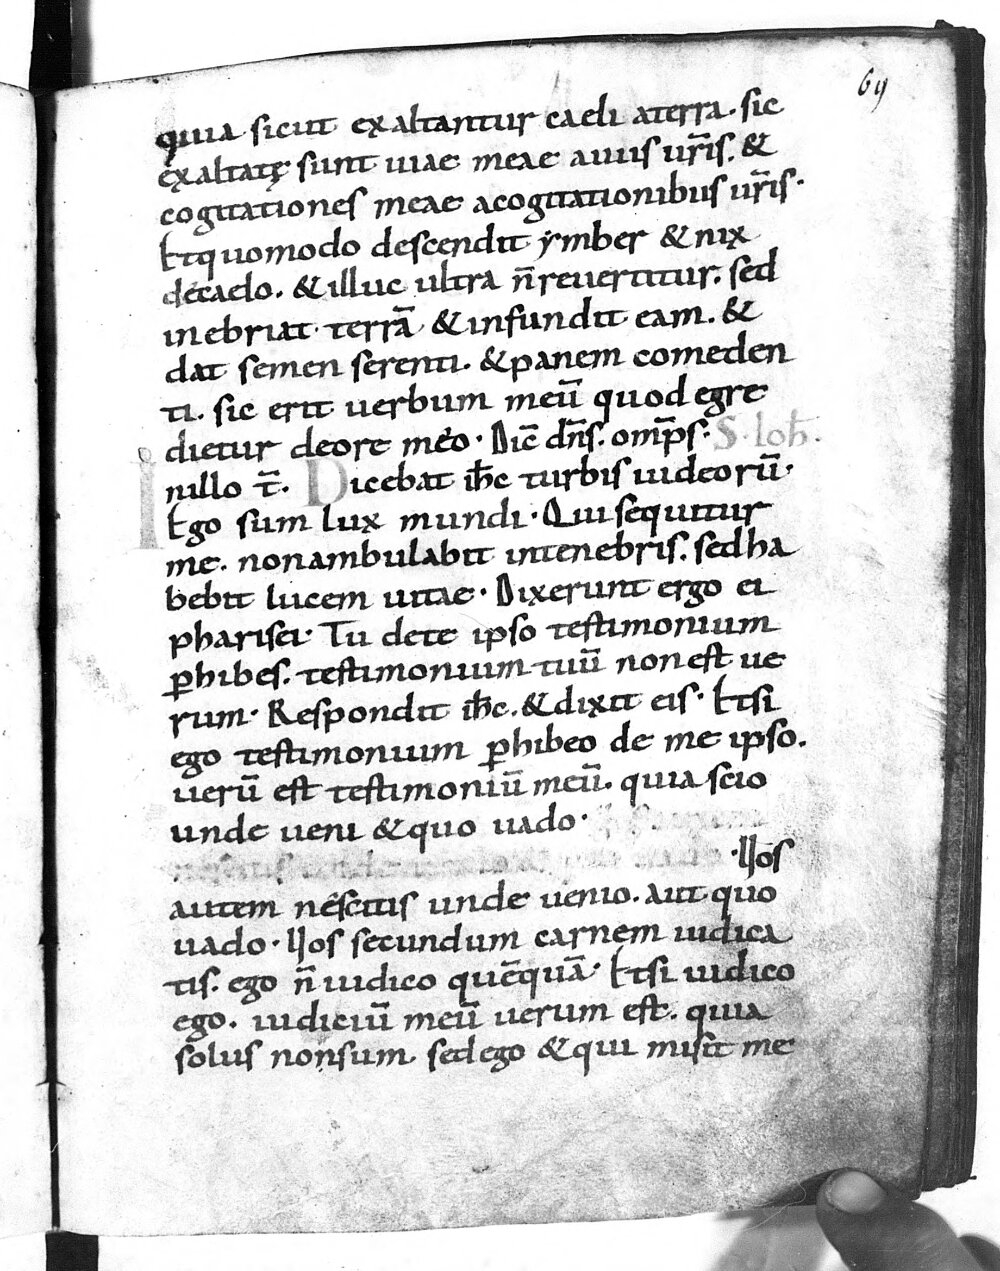 69
quia sicut exaltantur caeli a terra. sic
exaltatę sunt uiae meae a uiis ur̄is. &
cogitationes meae a cogitationibus ur̄is.
Et quomodo descendit ymber & nix
de caelo. & illuc ultra n̄ reuertitur. sed
inebriat terrā & infundit eam. &
dat semen serenti. & panem comeden
ti. sic erit uerbum meū quod egre
dietur de ore meo. Dic̄ dn̄s. om̄ps. S. Ioh̄.
In illo t̄. Dicebat ih̄c turbis iudeorū.
Ego sum lux mundi. Qui sequitur
me. non ambulabit in tenebris. sed ha
bebit lucem uitae. Dixerunt ergo ei
pharisei. Tu de te ipso testimonium
p̱hibes. testimonium tuū non est ue
rum. Respondit ih̄c. & dixit eis. Etsi
ego testimonium p̱hibeo de me ipso.
uerū est testimoniū meū. quia scio
unde ueni & quo uado.
Uos
autem nescitis unde uenio. aut quo
uado. Uos secundum carnem iudica
tis. ego n̄ iudico quēquā. Etsi iudico
ego. iudiciū meū uerum est. quia
solus non sum. sed ego & qui misit me